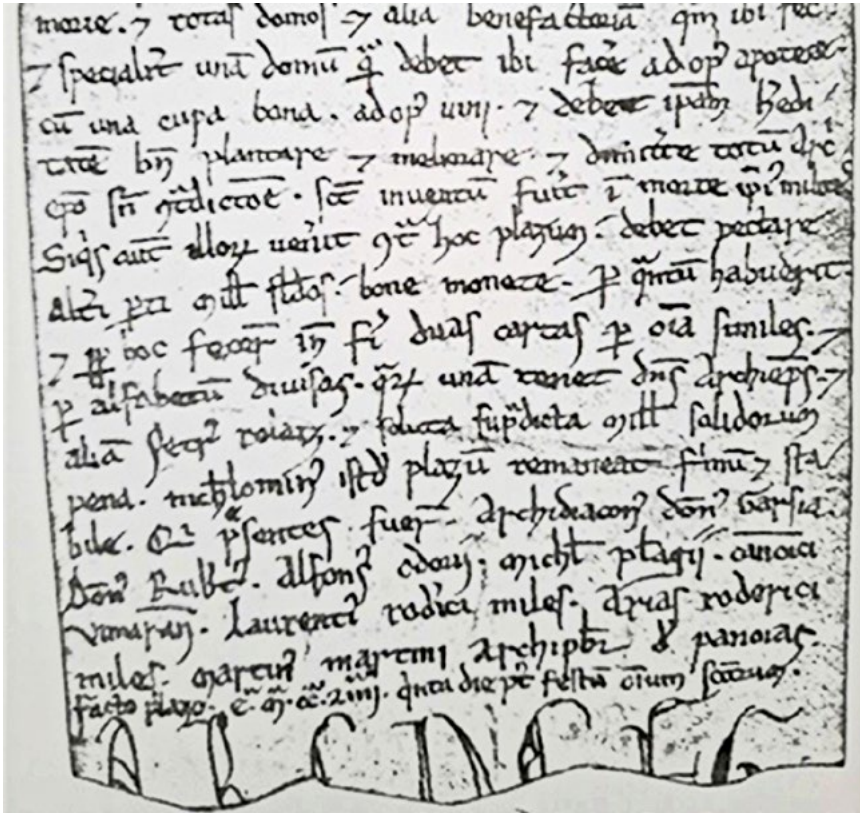 morte. ⁊ totas domos ⁊ alia benefactoria qm̄ ibi fec
⁊ specialit̄ unā domū q̄ debet ibi fac̄e ad op̕ apotece
cū una cupa bona. ad op̕ uini. ⁊ debet ip̄am h̄edi
tatē bn̄ plantare ⁊ meliorare ⁊ dimict̄e totū Arc̄
ep̄o sn̄ ꝯt̄dictōe. sc̄t inventū fuit̄ ī morte
Siq̕s aut̄ illoꝝ ven̄it ꝯt̄ hoc plazum. debet pectare
alt̄i ꝑti mill̄ sl̄dos. bone monete. ꝑ q̄ntū habuerit
⁊ ꝑ hoc fecer̄ in̄ duas cartas ꝑ oīa similes. ⁊
ꝑ alfabetum divisas. q̄ꝝ unā tenet dn̄s Archiep̄s. ⁊
aliā ⁊ soluta sup̄dicta mill̄ solidorum
pena. nichilomin̕ istd̄ plazū remaneat firmū ⁊ sta
bile. Qi p̄sentes fuer̄ Archidiacon̕ don̕ Garsia.
Don̕ Rub̄t̕. Alfons̕ odorii. Michl̄ pl̄agii.
vimaran̄. Laurenti̕ rod̕ici miles. Arias roderici
miles. Martin̕ martini Archipb̄r d̄ panoias.
facto plazo. E. M. CC. Liiii. q̕nta die pt̄ festū oīum sc̄torum.